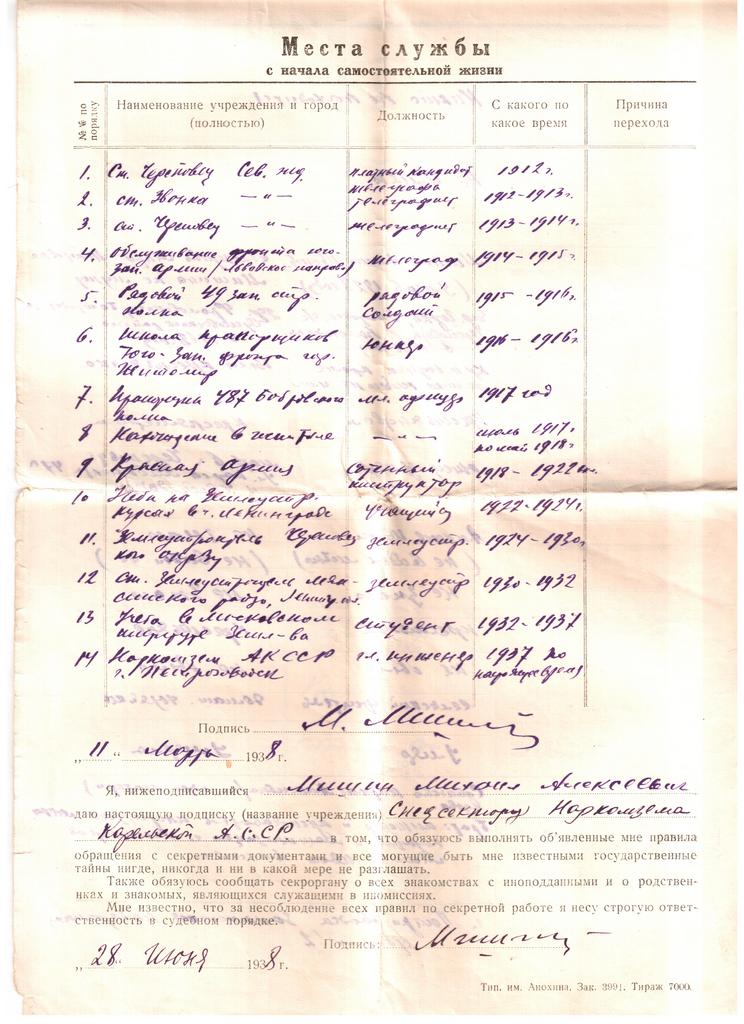 Места службы
с начала самостоятельной жизни
№№ по порядку
Наименование учреждения и город (полностью)
Должность
С какого по какое время
Причина перехода
1. Ст. Череповец Сев. жд платный кандидат телеграфа 1912 г.
2. ст. Званка — „ — телеграфист 1912-1913 г.
3. ст. Череповец — „ — телеграфист 1913-1914 г.
4. Обслуживание фронта юго- телеграф 1914-1915 г.
зап. армии (Львовское направ.)
5. Рядовой 49 зап. стр. рядовой 1915-1916 г.
полка солдат
6. Школа прапорщиков юнкер 1916-1916 г.
Юго-Зап. фронта гор.
Житомир
7. Прапорщик 487 Бобровского мл. офицер 1917 год
полка
8 Нахождение в — „ — июль 1917 г.
по май 1918 г.
9 Красная армия сотенный 1918-1922
инструктор
10 Учеба на Землеустр. учащийся 1922-1924 г.
курсах в г. Ленинграде
11. Череповец землеустр. 1924-1930 г.
кого
12 ст. землеустр 1930-1932
района,
13 Учеба в Московском студент 1932-1937
институте Земл-ва
14 Наркомзем АКССР гл. инженер 1937 по
г. Петрозаводск настоящее время
Подпись М. Мишин
„11“ Марта 1938 г.
Я, нижеподписавшийся Мишин Михаил Алексеевич
даю настоящую подписку (название учреждения) Спецсектору Наркомзема
Карельской А.С.С.Р. в том, что обязуюсь выполнять об'явленные мне правила
обращения с секретными документами и все могущие быть мне известными государственные
тайны нигде, никогда и ни в какой мере не разглашать.
Также обязуюсь сообщать секроргану о всех знакомствах с иноподданными и о родствен-
никах и знакомых, являющихся служащими в иномиссиях.
Мне известно, что за несоблюдение всех правил по секретной работе я несу строгую ответ-
ственность в судебном порядке.
Подпись: Мишин
„28“ Июня 1938 г.
Тип. им. Анохина. Зак. 3991. Тираж 7000.